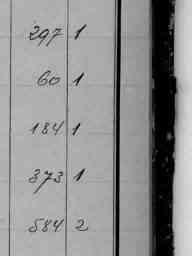 297 1
60 1
184 1
373 1
584 2